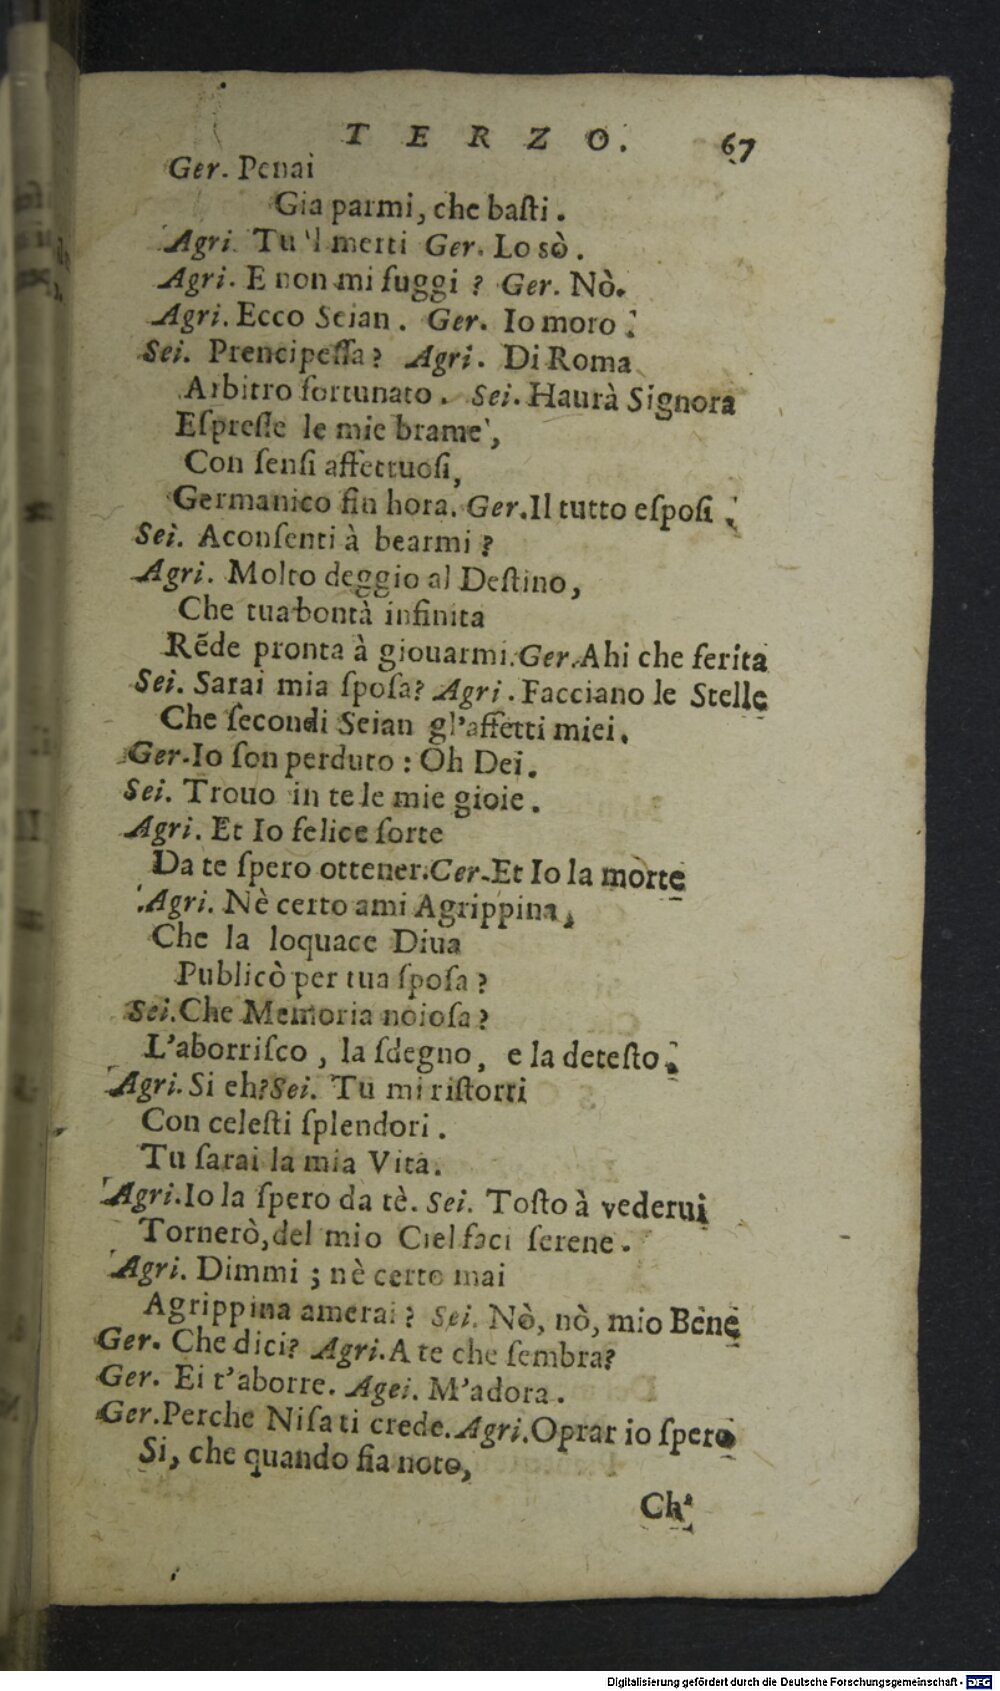 TERZO. 67
Ger. Penai
Gia parmi, che baſti.
Agri. Tu 'l merti Ger. Lo sò.
Agri. E non mi fuggi? Ger. Nò.
Agri. Ecco Seian. Ger. Io moro.
Sei. Prencipeſſa? Agri. Di Roma
Arbitro fortunato. Sei. Haurà Signora
Eſpreſſe le mie brame,
Con ſenſi affettuoſi,
Germanico fin hora. Ger. Il tutto eſpoſi.
Sei. Aconſenti à bearmi?
Agri. Molto deggio al Deſtino,
Che tua bontà infinita
Rẽde pronta à giouarmi. Ger. Ahi che ferita
Sei. Sarai mia ſpoſa? Agri. Facciano le Stelle
Che ſecondi Seian gl'affetti miei.
Ger. Io ſon perduto: Oh Dei.
Sei. Trouo in te le mie gioie.
Agri. Et Io felice ſorte
Da te ſpero ottener. Cer. Et Io la morte
Agri. Nè certo ami Agrippina,
Che la loquace Diua
Publicò per tua ſpoſa?
Sei. Che Memoria noioſa?
L'aborriſco, la ſdegno, e la deteſto.
Agri. Si eh? Sei. Tu mi riſtorri
Con celeſti ſplendori.
Tu ſarai la mia Vita.
Agri. Io la ſpero da tè. Sei. Toſto à vederui
Tornerò, del mio Ciel faci ſerene.
Agri. Dimmi; nè certo mai
Agrippina amerai? Sei. Nò, nò, mio Bene
Ger. Che dici? Agri. A te che ſembra?
Ger. Ei t'aborre. Agei. M'adora.
Ger. Perche Niſa ti crede. Agri. Oprar io ſpero
Si, che quando ſia noto,
Ch'
Digitalisierung gefördert durch die Deutsche Forschungsgemeinschaft - DFG